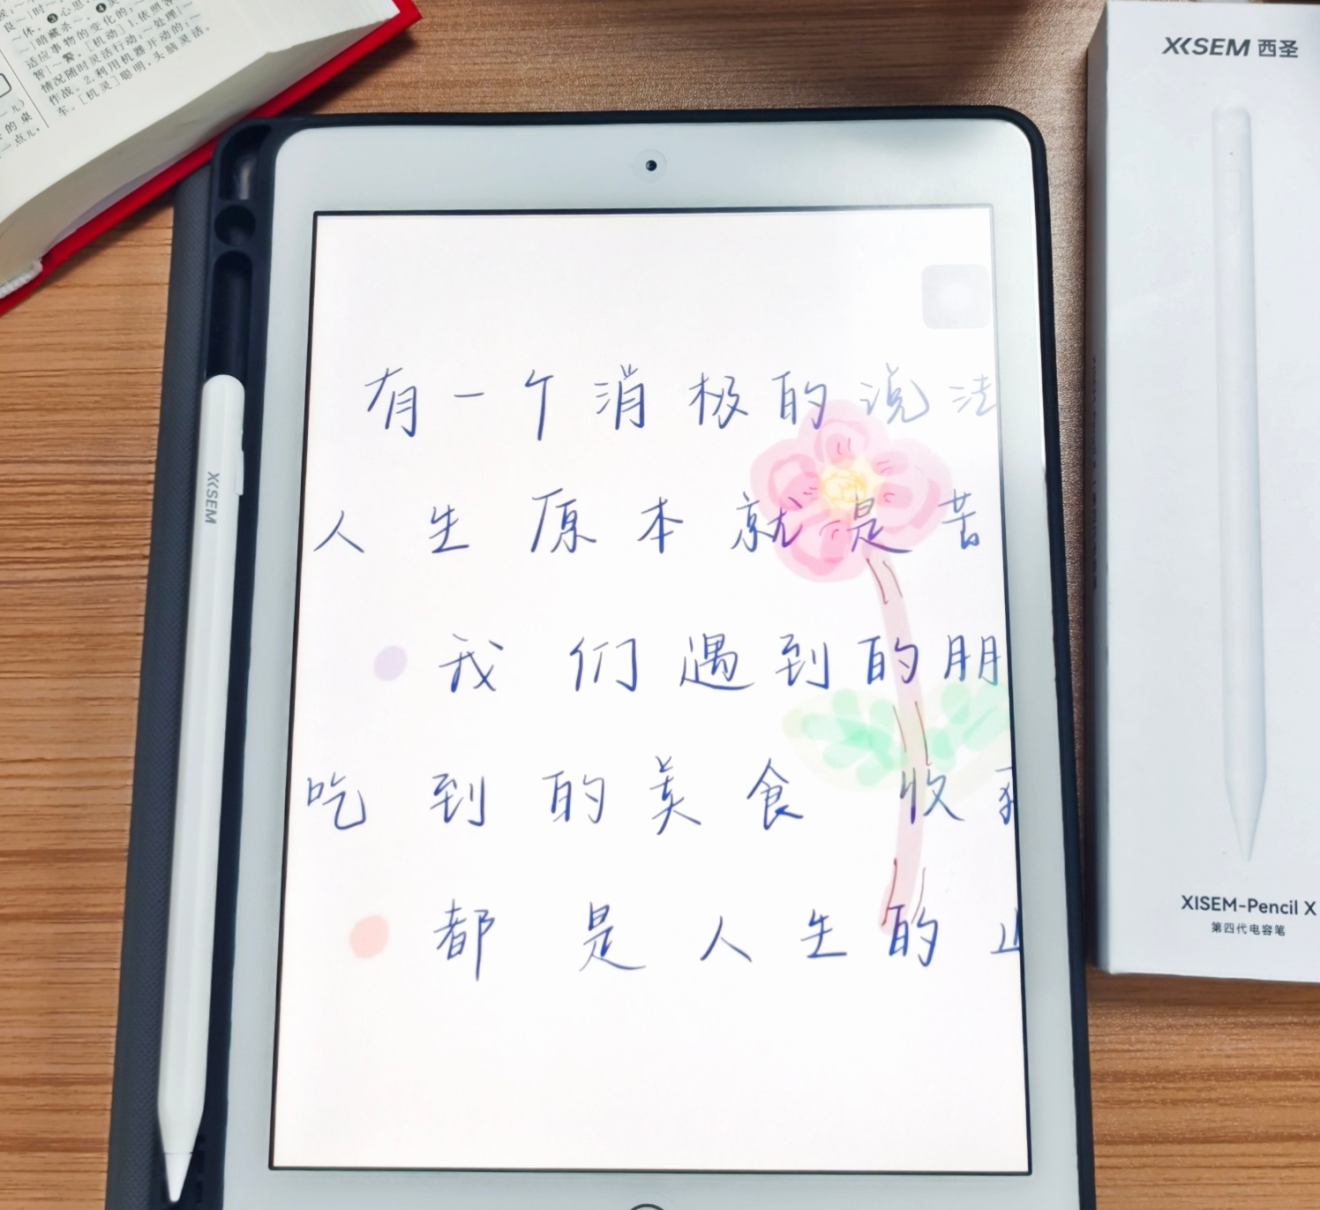 适应事物的变化的:
情况随时灵活行动:
作战。2.利用机器开动的:
车。[机灵]聪明,头脑灵活。
XISEM 西圣
XISEM
有一个消极的说法
人生原本就是苦
我们遇到的朋
吃到的美食 收
都是人生的
XISEM-Pencil X
第四代电容笔